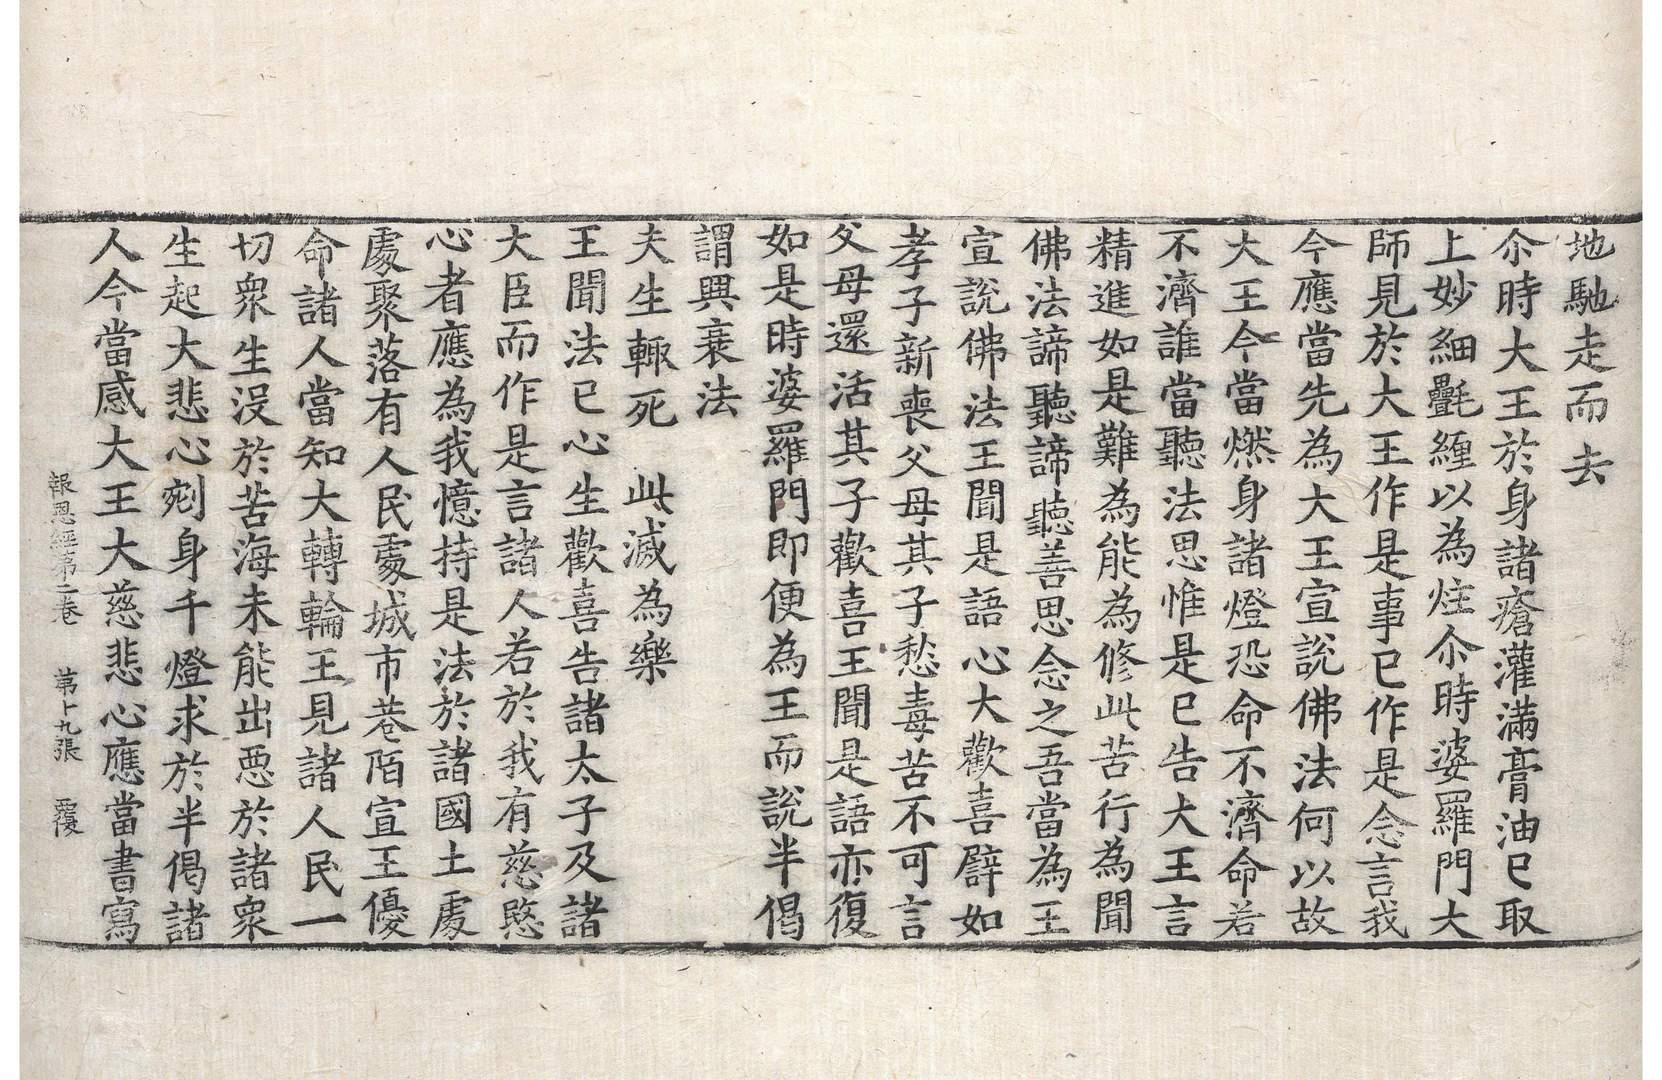 地馳走而去
尒時大王於身諸瘡灌滿膏油已取
上妙細㲲纏以為炷尒時婆羅門大
師見於大王作是事已作是念言我
今應當先為大王宣說佛法何以故
大王今當燃身諸燈恐命不濟命若
不濟誰當聽法思惟是已告大王言
精進如是難為能為修此苦行為聞
佛法諦聽諦聽善思念之吾當為王
宣說佛法王聞是語心大歡喜譬如
孝子新喪父母其子愁毒苦不可言
父母還活其子歡喜王聞是語亦復
如是時婆羅門即便為王而說半偈
謂興衰法
夫生輙死　此滅為樂
王聞法已心生歡喜告諸太子及諸
大臣而作是言諸人若於我有慈愍
心者應為我憶持是法於諸國土處
處聚落有人民處城市巷陌宣王優
命諸人當知大轉輪王見諸人民一
切衆生没於苦海未能出悪於諸衆
生起大悲心剜身千燈求於半偈諸
人今當感大王大慈悲心應當書寫
報恩經第二卷　第十九張　覆